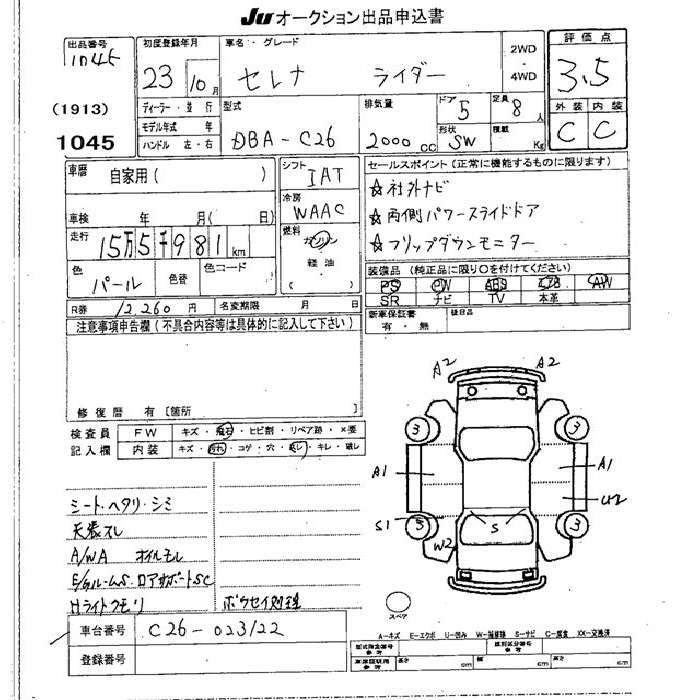 JU オークション出品申込書
出品番号
1045
(1913)
1045
初度登録年月
23 10月
車名・グレード
セレナ ライダー
2WD
・
4WD
評価点
3.5
外装 内装
C C
ディーラー・並行
モデル年式 年
ハンドル 左・右
型式
DBA-C26
排気量
2000cc
ドア 5
形状 SW
定員 8人
積載 Kg
車歴 自家用( )
車検 年 月( 日)
走行 15万5千981km
色 パール 色替 色コード
シフト IAT
冷房 WAAC
燃料 ガソリン
軽油
( )
セールスポイント(正常に機能するものに限ります)
☆社外ナビ
☆両側パワースライドドア
☆フリップダウンモニター
装備品(純正品に限り○を付けてください)
PS PW ABS エアB AW
SR ナビ TV 本革
新車保証書 後日品
有・無
R券 12260円 名変期限 月 日
注意事項申告欄(不具合内容等は具体的に記入して下さい)
修復歴 有[箇所 ]
検査員 FW キズ・飛石・ヒビ割・リペア跡・×要
記入欄 内装 キズ・汚れ・コゲ・穴・蒸し・キレ・破し
シートヘタリ・シミ
天張スレ
A/WA オイルモレ
ロアサポートSC
Hライトクモリ ボウセイ処理
車台番号 C26-023122
登録番号
A2 A2
3 3
A1 A1
U2
S1 3 3
S
W2
スペア
A-キズ E-エクボ U-凹み W-補修跡 S-サビ C-腐食 XX-交換済
型式指定番号 参考 類別区分番号 参考
車庫証明用 参考 長さ cm 幅 cm 高さ cm